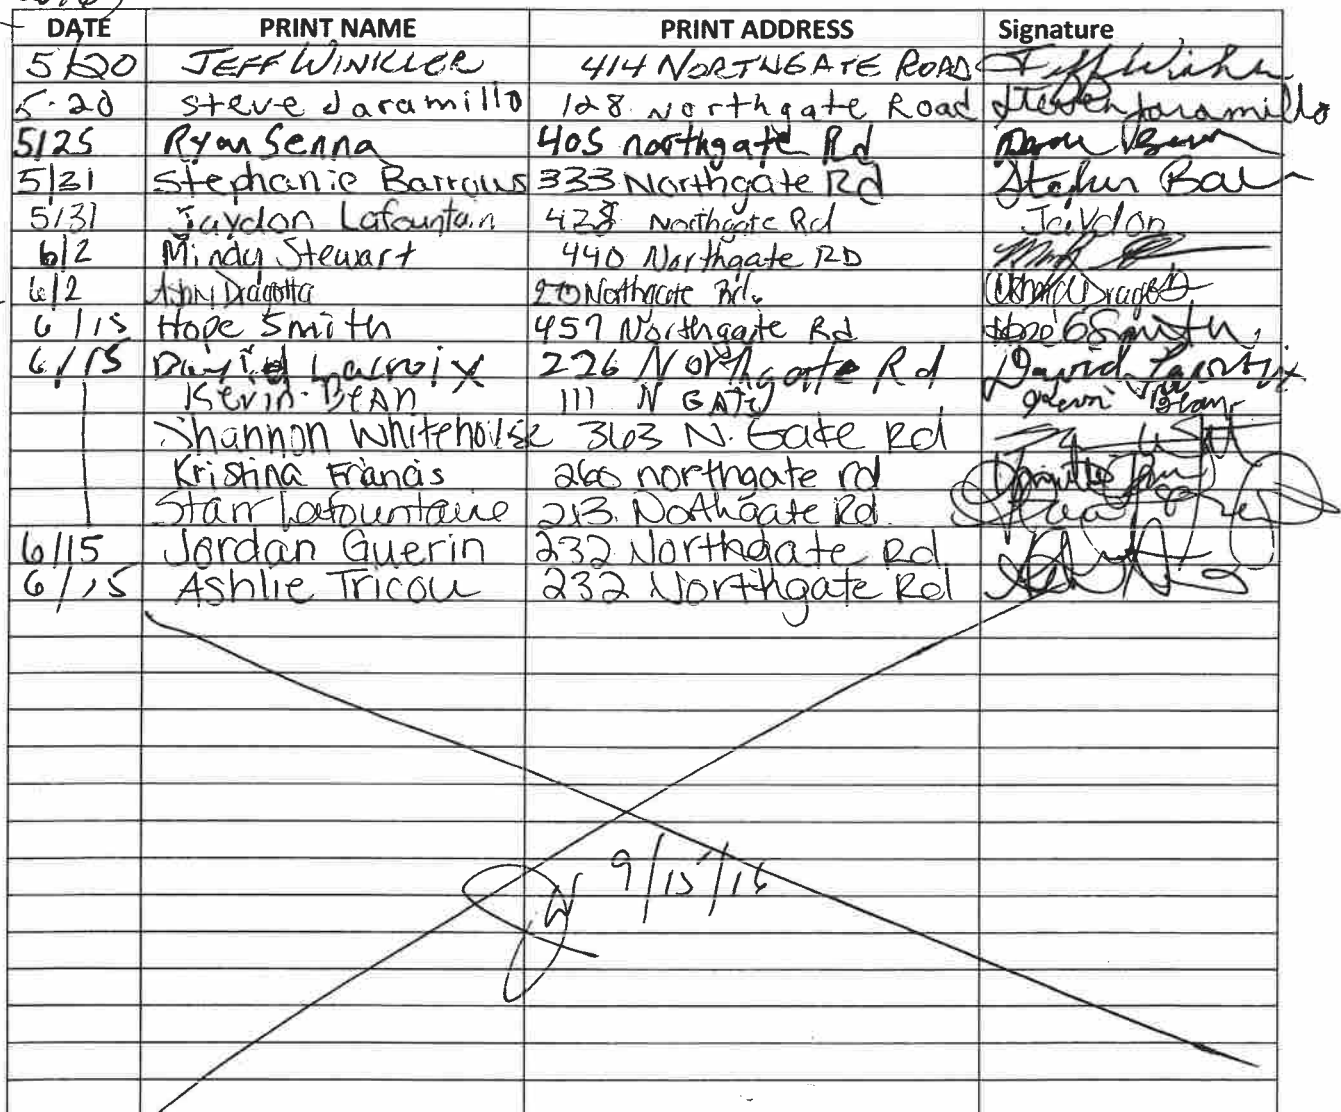 DATE PRINT NAME PRINT ADDRESS Signature
5/20 JEFF WINKLER 414 NORTHGATE ROAD Jeff Winkler
5-20 Steve Jaramillo 128 Northgate Road Steven Jaramillo
5/25 Ryan Senna 405 northgate Rd
5/31 Stephanie Barrows 333 Northgate Rd
5/31 Jaydon Lafountain Northgate Rd Jaydon
6/2 Mindy Stewart 440 Northgate RD
6/2 Dragotta 270 Northgate Rd.
6/15 Hope Smith 457 Northgate Rd Hope Smith
6/15 David Lacroix 226 Northgate Rd David Lacroix
Kevin Bean 111 N GATE Kevin Bean
Shannon Whitehouse 363 N. Gate Rd
Kristina Francis 260 northgate rd
Starr Lafountaine 213 Northgate Rd.
6/15 Jordan Guerin 232 Northgate Rd
6/15 Ashlie Tricou 232 Northgate Rd
9/15/16